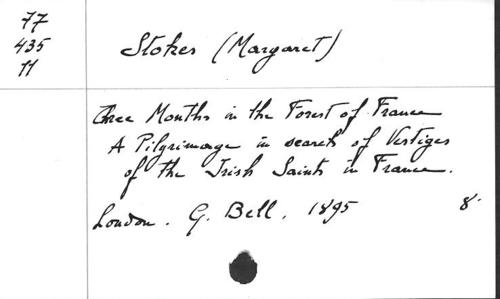 77
435
11
Stokes (Margaret)
Three Months in the Forest of France
A Pilgrimage in search of Vestiges
of the Irish Saints in France.
London. G. Bell. 1895 8°